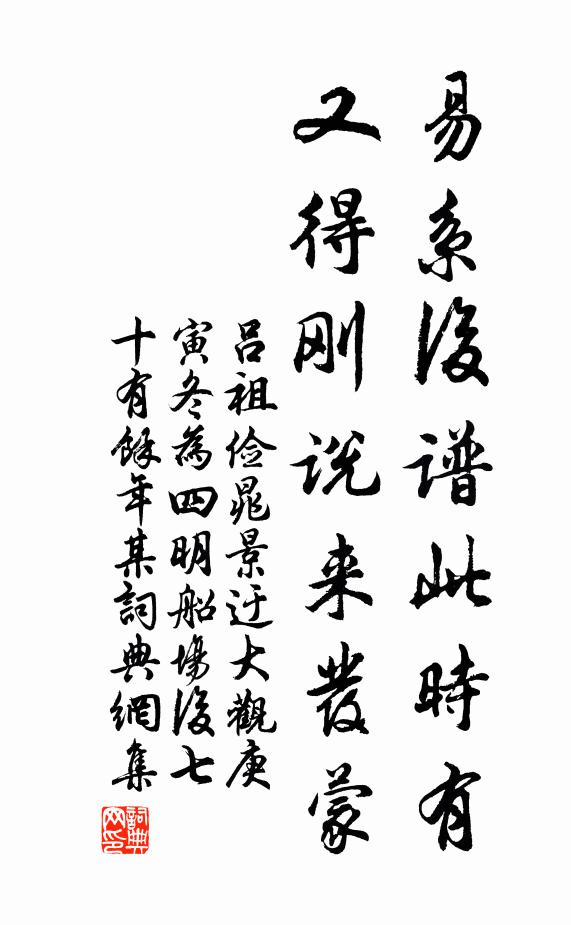 易系後譜此時有
又得剛說来發蒙
吕祖俭晁景迂大觀庚
寅冬為四明船場後七
十有餘年某詞典網集
詞典網印